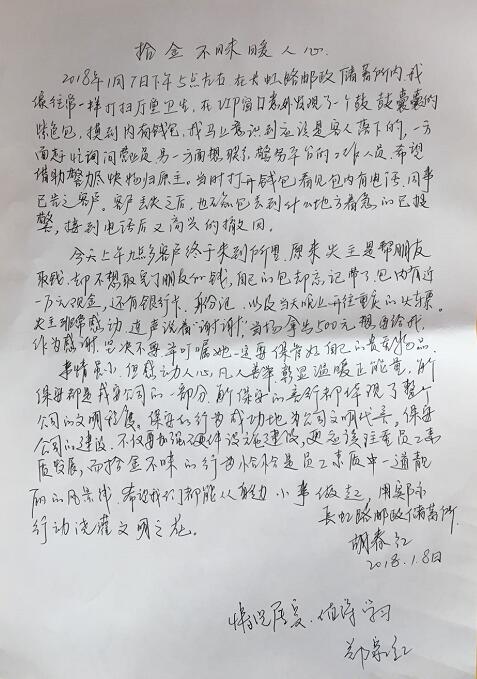 拾金不昧暖人心.
2018年1月7日下午5点左右在长虹路邮政储蓄所内,我
像往常一样打扫厅里卫生,在VIP窗口意外发现了一个鼓鼓囊囊的
紫色包,摸到内有钱包,我马上意识到应该是客人落下的,一方
面赶忙询问营业员,另一方面想联系警务平台的工作人员,希望
借助警力尽快物归原主。当时打开钱包看见包内有电话,同事
已告之客户。客户丢失之后,也不知包丢到什么地方着急的已报
警,接到电话后又高兴的撤回。
今天上午九点多客户终于来到所里,原来失主是帮朋友
取钱,却不想取完了朋友的钱,自己的包却忘记带了,包内有近
一万元现金,还有银行卡、身份证、以及当天晚上开往重庆的火车票。
失主非常感动,连声说着"谢谢",当场拿出500元想要给我,
作为感谢,坚决不要并叮嘱她一定要保管好自己的贵重物品。
事情虽小,但感动人心,凡人善举,彰显温暖正能量,所
保安都是我安公司的一部分,所保安的言行都体现了整个
公司的文明程度。保安的行为成功地为公司文明代言。保安
公司的建设,不仅要加强硬件设施建设,更应该注重员工素
质发展,而拾金不昧的行为恰恰是员工素质中一道靓
丽的风景线,希望我们都能从身边小事做起,用实际
行动浇灌文明之花。
长虹路邮政储蓄所
胡春红
2018.1.8日
情况属实.值得学习